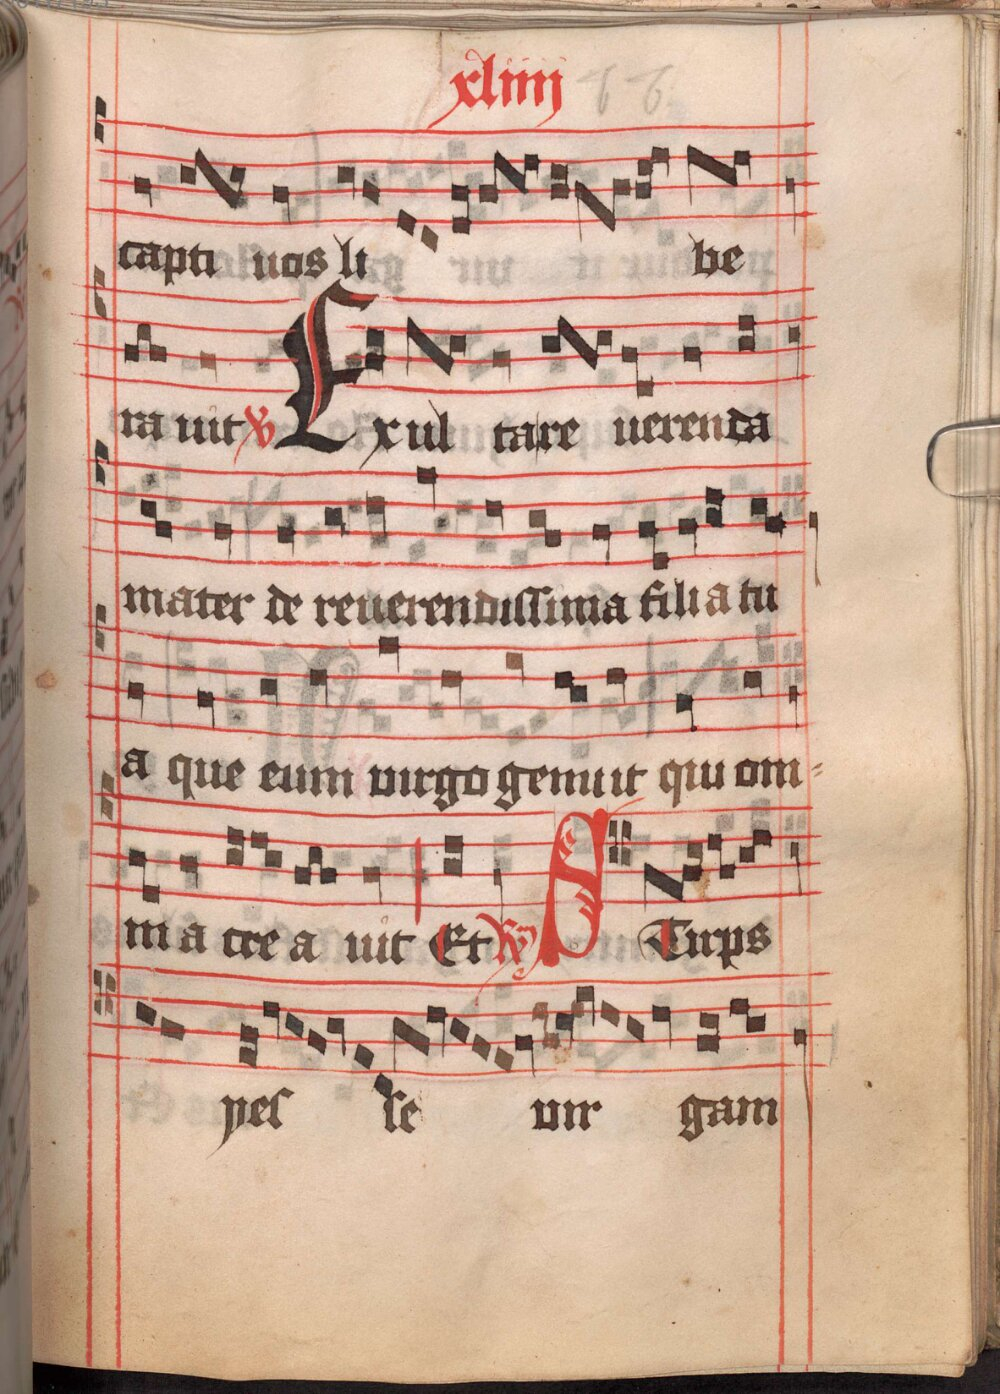 xliiij
capti uos li be
ra uit ℣ Exul tare uerenda
mater de reuerendissima filia tu
a que eum uirgo genuit qui om-
ni a cre a uit Et ℟ Stirps
yes se uir gam